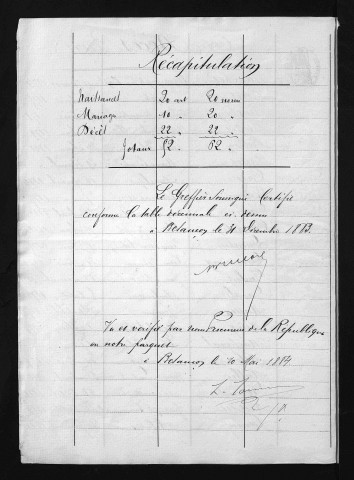 Récapitulation
Naissances 20 act 20 noms
Mariages 10 " 20 "
Décès 22 " 22 "
Totaux 52 " 62 "
Le Greffier soussigné certifie
conforme la table décennale ci-dessus
à Besançon le 31 Décembre 1883.
Vu et vérifié par nous Procureur de la République
en notre parquet
à Besançon le 10 Mai 1884